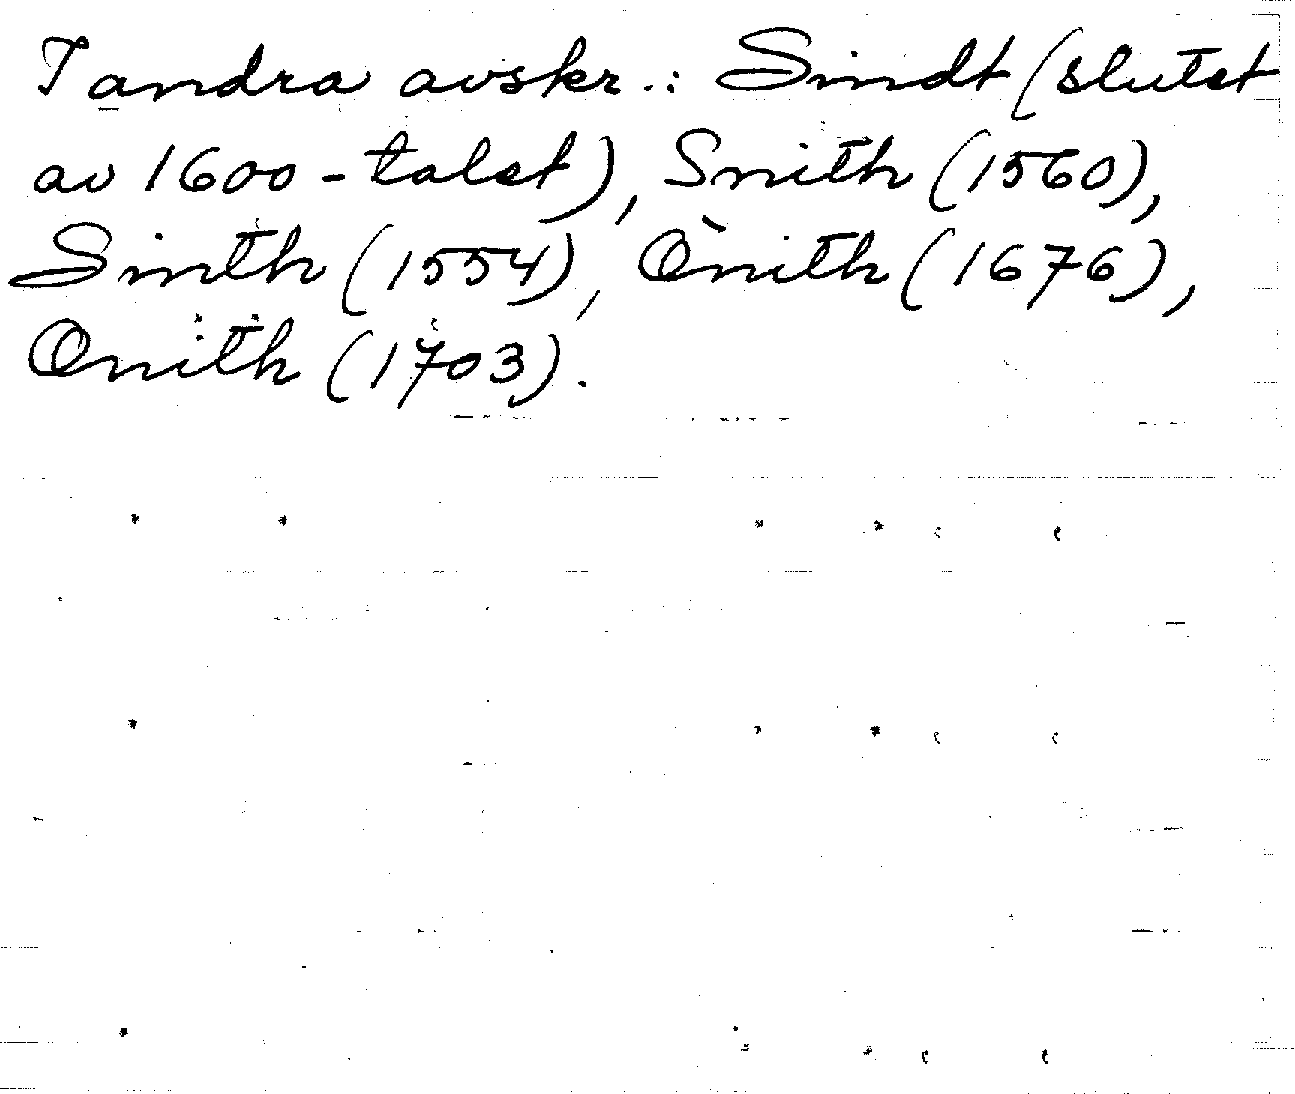 I andra avskr.: Sindt (slutet
av 1600-talet), Snith (1560),
Sinth (1554), Ònith (1676),
Onith (1703).